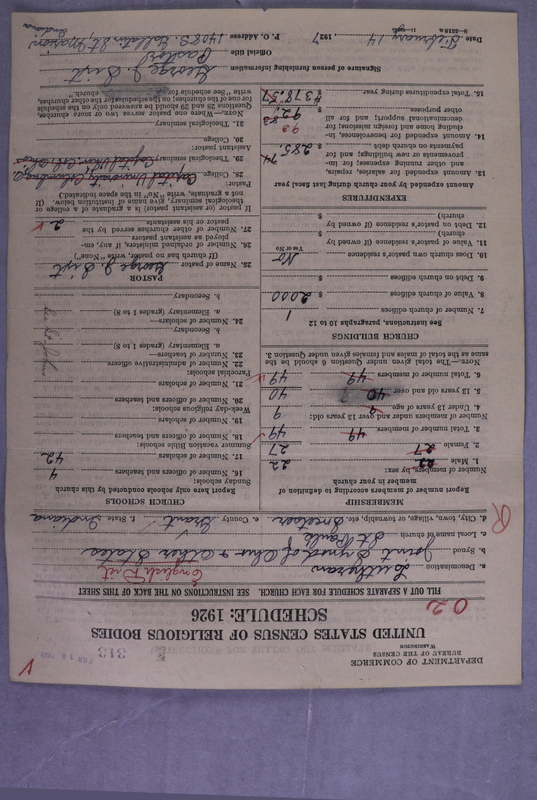 DEPARTMENT OF COMMERCE
BUREAU OF THE CENSUS
WASHINGTON
313
UNITED STATES CENSUS OF RELIGIOUS BODIES
SCHEDULE: 1926
02
FILL OUT A SEPARATE SCHEDULE FOR EACH CHURCH. SEE INSTRUCTIONS ON THE BACK OF THIS SHEET
a. Denomination Lutheran English Dist
b. Synod Joint Synod of Ohio & Other States
c. Local name of church St Pauls
d. City, town, village, or township, etc. Sweetser e. County Grant f. State Indiana
R
MEMBERSHIP
Report number of members according to definition of member in your church
Number of members, by sex:
1. Male 22
2. Female 27 27
3. Total number of members 49 49
Number of members under and over 13 years old:
4. Under 13 years of age 9 9
5. 13 years old and over 40 40
6. Total number of members 49 49
NOTE.—The total given under Question 6 should be the same as the total of males and females given under Question 3.
CHURCH BUILDINGS
See instructions, paragraphs 10 to 12
7. Number of church edifices 1
8. Value of church edifices $ 2000
9. Debt on church edifices $
10. Does church own pastor's residence No
Yes or No
11. Value of pastor's residence (if owned by church) $
12. Debt on pastor's residence (if owned by church) $
EXPENDITURES
Amount expended by your church during last fiscal year
13. Amount expended for salaries, repairs, and other running expenses; for payments on new buildings; and for payments on church debt $ 285.74
14. Amount expended for benevolences, including home and foreign missions; for denominational support; and for all other purposes $ 92.83 93
15. Total expenditures during year $ 378.57
CHURCH SCHOOLS
Report here only schools conducted by this church
Sunday schools:
16. Number of officers and teachers 4
17. Number of scholars 42
Summer vacation Bible schools:
18. Number of officers and teachers
19. Number of scholars
Week-day religious schools:
20. Number of officers and teachers
21. Number of scholars
Parochial schools:
22. Number of administrative officers
23. Number of teachers—
a. Elementary (grades 1 to 8)
b. Secondary
24. Number of scholars—
a. Elementary (grades 1 to 8)
b. Secondary
PASTOR
25. Name of pastor George J. Gift
(If church has no pastor, write "None")
26. Number of ordained ministers, if any, employed as assistant pastors
27. Number of other churches served by the pastor or his assistants 2
If pastor (or assistant pastor) is a graduate of a college or theological seminary, give name of institution below. (If not a graduate, write "No" in the space indicated.)
Pastor:
28. College. Capital University, Columbus, O
29. Theological seminary. Capital Univ. Col. Ohio
Assistant pastor:
30. College.
31. Theological seminary.
NOTE.—Where one pastor serves two or more churches, Questions 28 and 29 should be answered only on the schedule for one of the churches; on the schedules for the other churches, write "See schedule for church."
Signature of person furnishing information George J. Gift
Official title Pastor
Date February 14, 1927. P. O. Address 1408 S. Gallatin St, Marion Indiana
8—5519a 11—9085